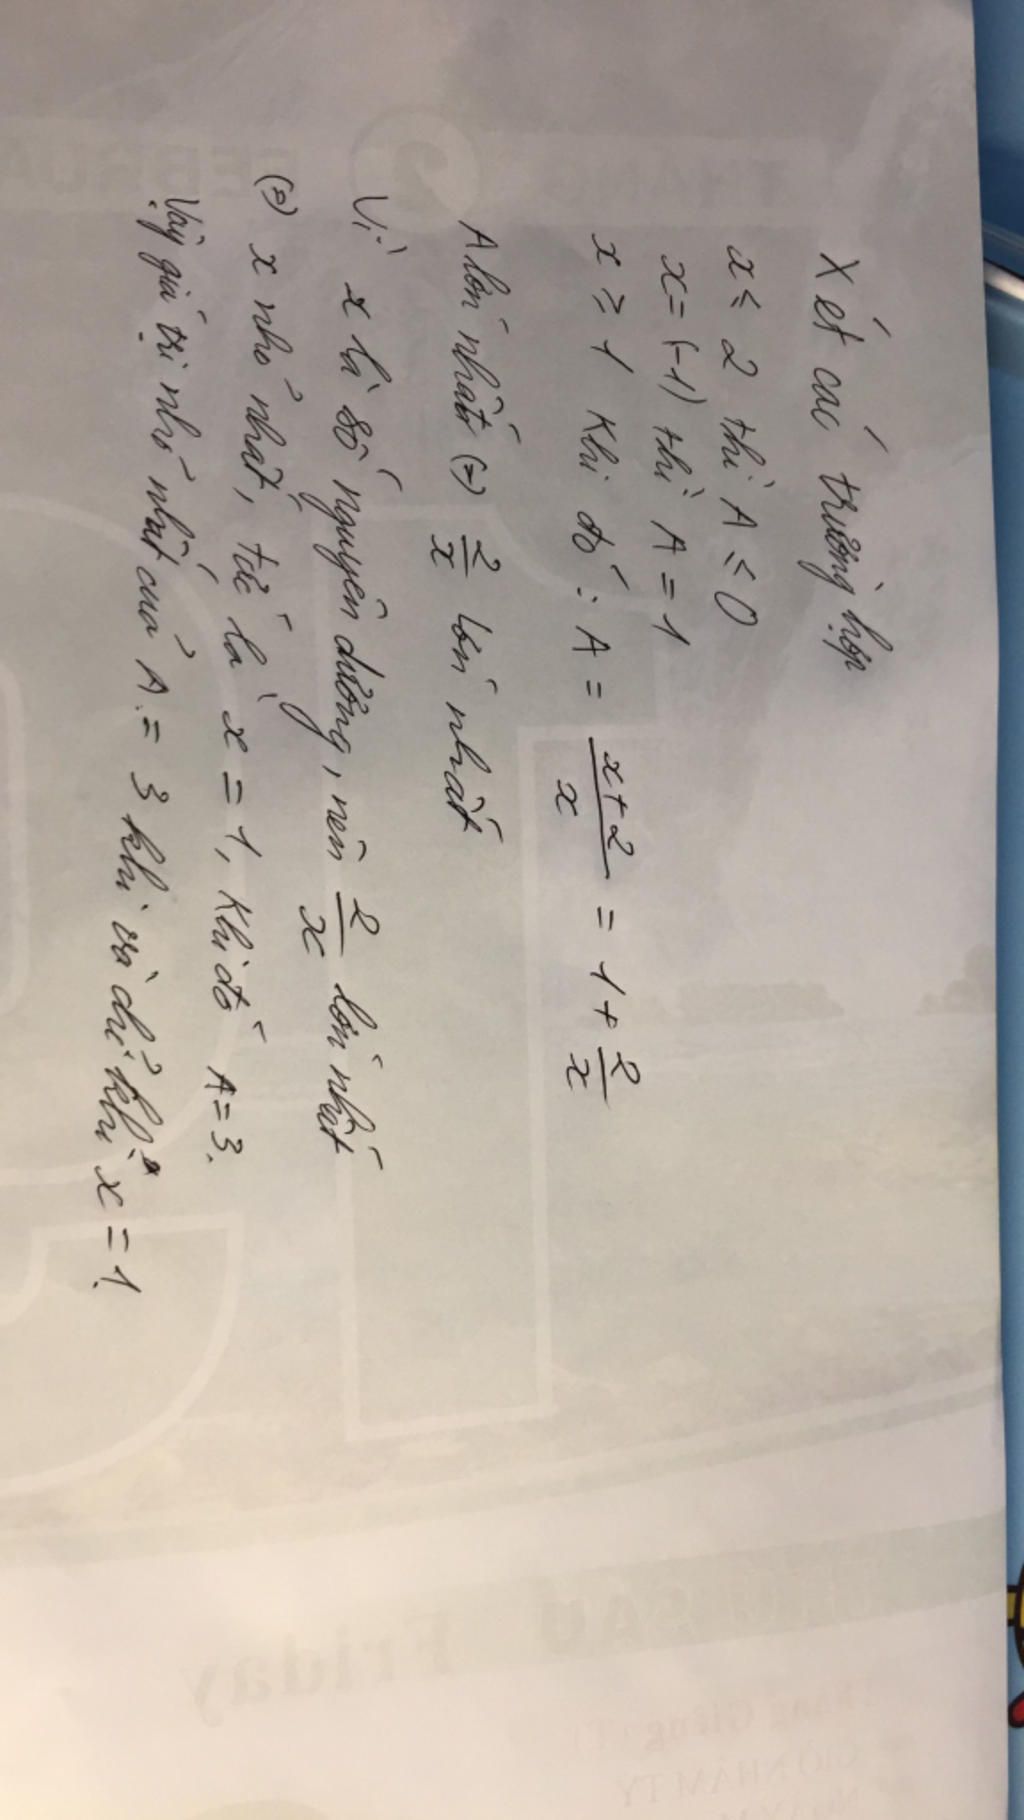 Xét các trường hợp
x ≤ 2 thì A ≤ 0
x = (-1) thì A = 1
x ≥ 1 Khi đó : A = x+2/x = 1 + 2/x
A lớn nhất (=) 2/x lớn nhất
Vì x là số nguyên dương, nên 2/x lớn nhất
(=) x nhỏ nhất, tức là x = 1, Khi đó A = 3.
Vậy giá trị nhỏ nhất của A = 3 khi và chỉ khi x = 1.
THÁNG 2 FEBRUA
THỨ SÁU Friday
Tháng Giêng (T)
GIỜ NHÂM TÝ